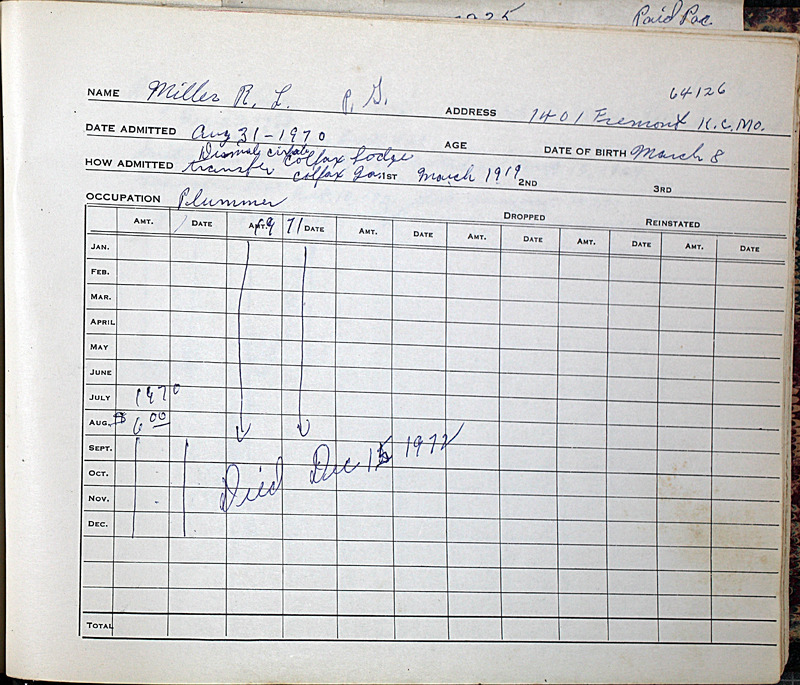 Paid Pac.
64126
NAME Miller R. L. P. G. ADDRESS 1401 Fremont K.C. Mo.
DATE ADMITTED Aug 31-1970 AGE DATE OF BIRTH March 8
Dismal cirfate Colfax Lodge
HOW ADMITTED transfer Colfax Ia. 1ST March 1919 2ND 3RD
OCCUPATION Plummer
DROPPED REINSTATED
AMT. DATE AMT. 19 71 DATE AMT. DATE AMT. DATE AMT. DATE AMT. DATE
JAN.
FEB.
MAR.
APRIL
MAY
JUNE
JULY 1970
AUG. $ 6 00
SEPT.
Died Dec 15 1972
OCT.
NOV.
DEC.
TOTAL